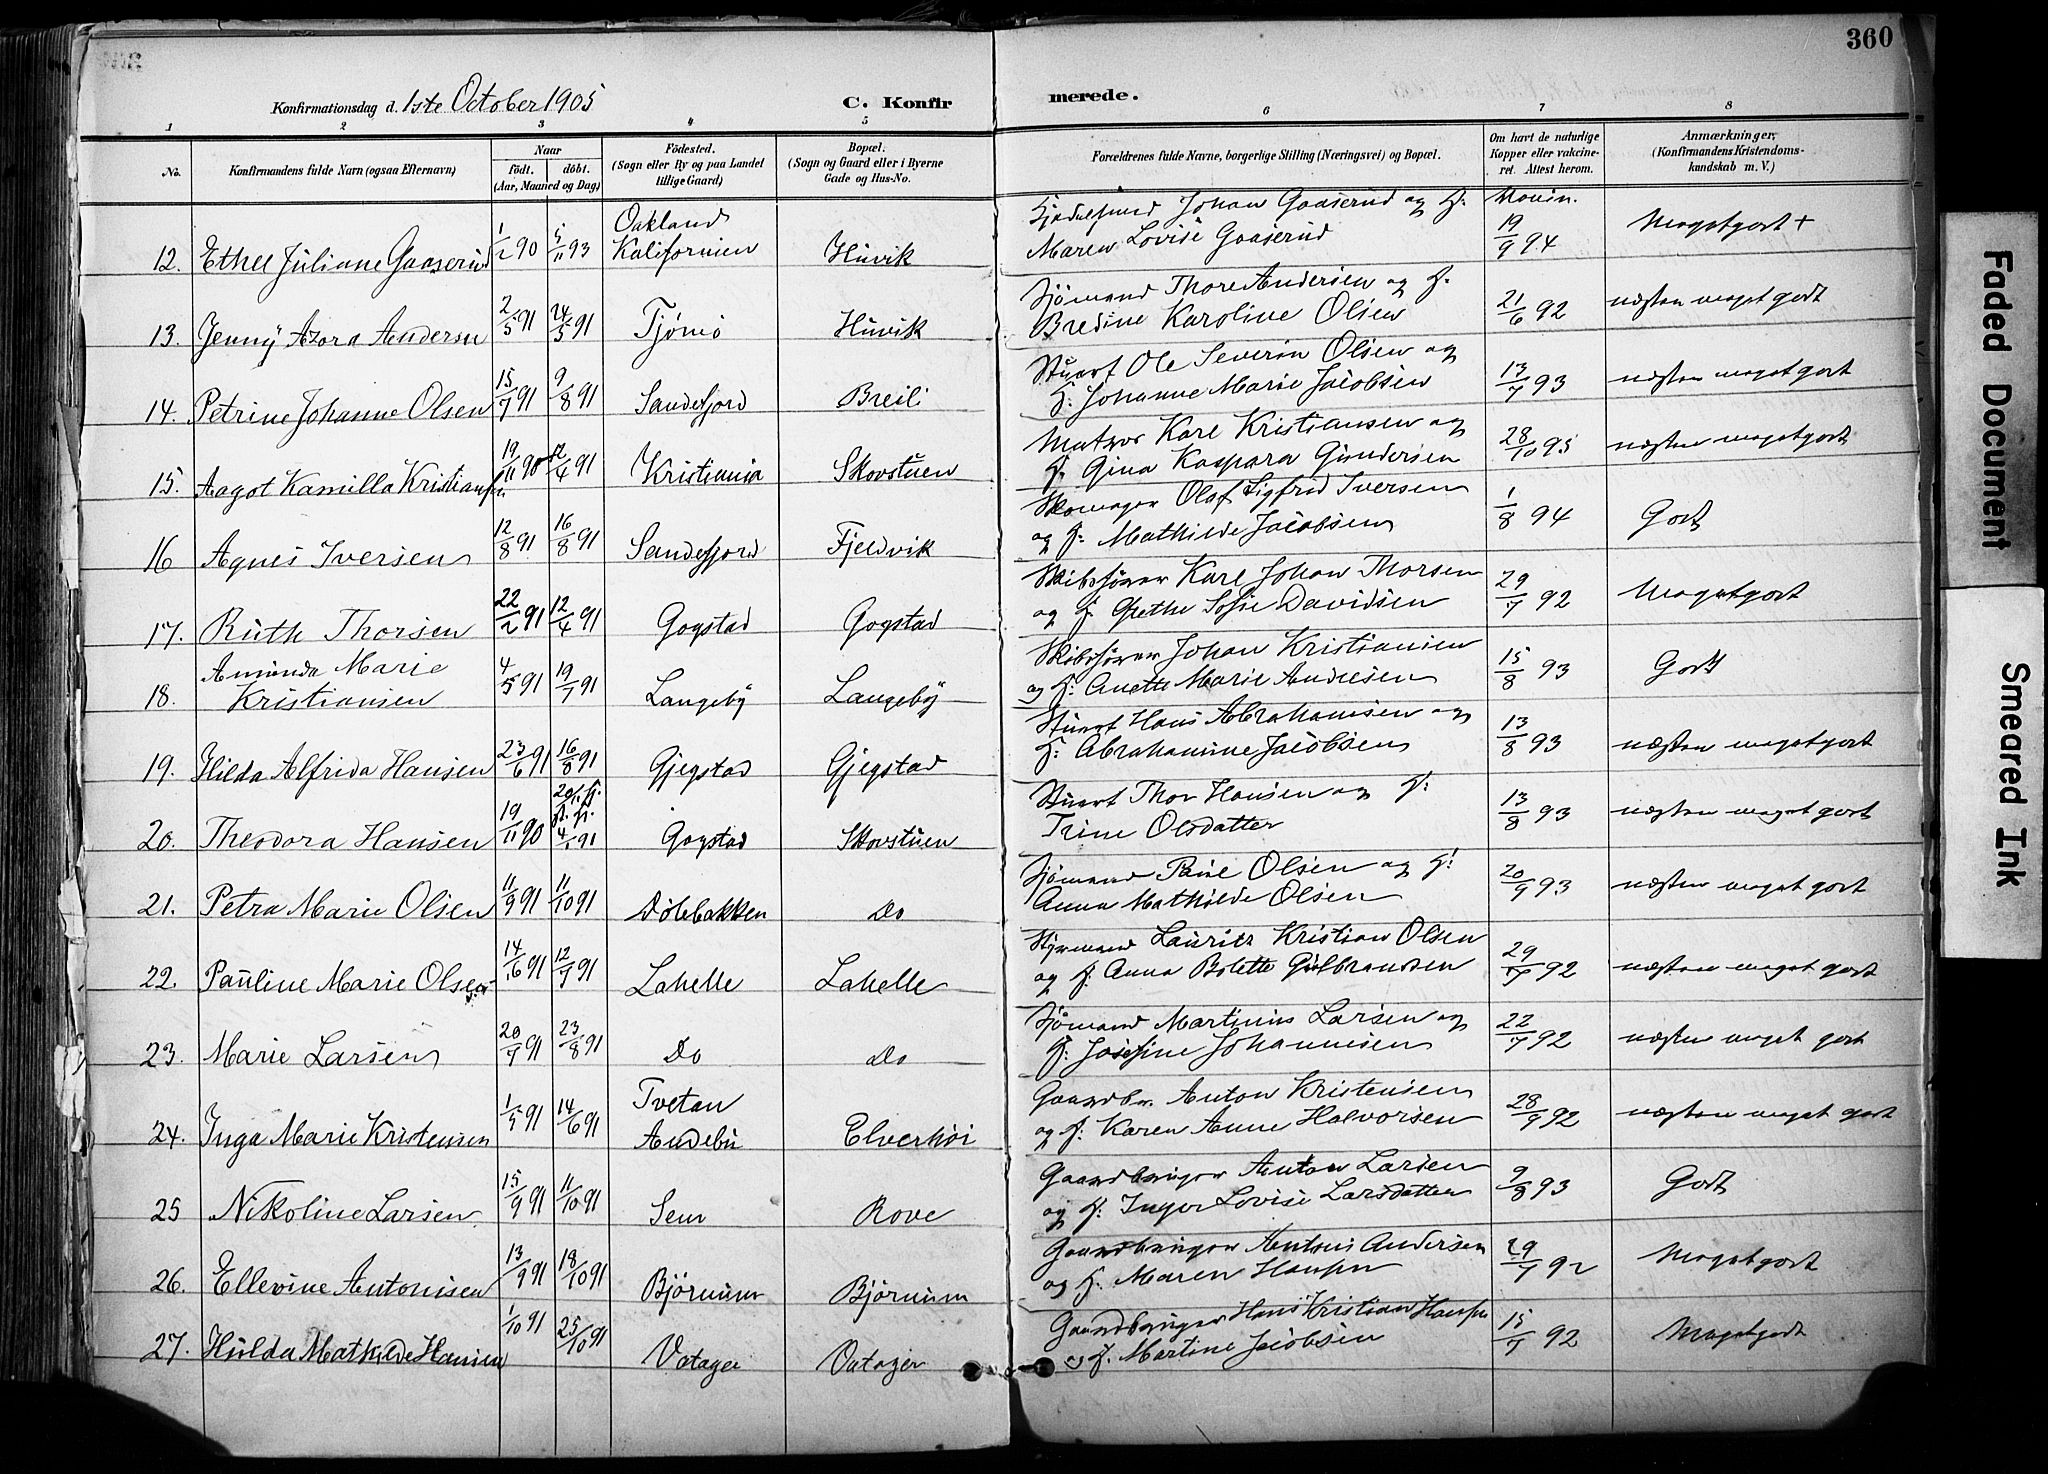 360
Konfirmationsdag d. 1ste October 1905
C. Konfir
merede.
1 2 3 4 5 6 7 8
No.
Konfirmandens fulde Navn (ogsaa Efternavn)
Naar
født. døbt.
(Aar, Maaned og Dag)
Fødested.
(Sogn eller By og paa Landet
tillige Gaard)
Bopæl.
(Sogn og Gaard eller i Byerne
Gade og Hus-No.
Forældrenes fulde Navne, borgerlige Stilling (Næringsvei) og Bopæl.
Om havt de naturlige
Kopper eller vakcine-
ret. Attest herom.
Anmærkninger,
(Konfirmandens Kristendoms-
kundskab m. V.)
12. Ethel Juliane Gaaserud 1/2 90 5/11 93 Oakland Kalifornien Huvik Johan Gaaserud og H.
Maren Lovise Gaaserud 19/9 94 Megetgodt +
13. Jenny Azora Andersn 2/5 91 24/5 91 Tjømö Huvik Sjömand Thore Andersen og H.
Bredine Karoline Olsen 21/6 92 næsten meget godt
14. Petrine Johanne Olsen 15/7 91 9/8 91 Sandefjord Breili Stuert Ole Severin Olsen og
H: Johanne Marie Jacobsen 13/7 93 næsten meget godt
15. Aagot Kamilla Kristiansen 19/11 90 12/4 91 Kristiania Skovstuen Matros Karl Kristiansen og
H. Gina Kaspara Gundersen 28/10 95 næsten megetgodt
16 Agnes Iversen 12/8 91 16/8 91 Sandefjord Fjeldvik Skomager Olaf Sigfrid Iversen
og H: Mathilde Jacobsen 1/8 94 Godt
17. Ruth Thorsen 22/2 91 12/4 91 Gogstad Gogstad Skibsfører Karl Johan Thorsen
og H. Grethe Sofie Davidsen 29/7 92 Megetgodt
18. Amanda Marie
Kristiansen 4/5 91 19/7 91 Langeby Langeby Skibsfører Johan Kristiansen
og H: Anette Marie Andresen 15/8 93 Godt
19. Hilda Alfrida Hansen 23/6 91 16/8 91 Gjegstad Gjegstad Stuert Hans Abrahamsen og
H: Abrahamine Jacobsen 13/8 93 næsten megetgodt
20. Theodora Hansen 19/11 90 4/1 91 Gogstad Skovstuen Stuert Thor Hansen og H:
Trine Olsdatter 13/8 93 næsten meget godt
21. Petra Marie Olsen 11/9 91 11/10 91 Dølebakken Do Sjömand Paul Olsen og H:
Anna Mathilde Olsen 20/9 93 næsten meget godt
22. Pauline Marie Olsen 14/6 91 12/7 91 Lahelle Lahelle Styrmand Lauritz Kristian Olsen
og H. Anna Bolette Gulbrandsen 29/7 92 næsten meget godt
23. Marie Larsen 20/7 91 23/8 91 Do Do Sjömand Martinius Larsen og
H: Josefine Johannesen 22/7 92 næsten meget godt
24. Inga Marie Kristensen 1/5 91 14/6 91 Tvetan
Andebu Elverhöi Gaardbr. Anton Kristensen
og H. Karen Anne Halvorsen 28/9 92 næsten meget godt
25 Nikoline Larsen 15/9 91 11/10 91 Sem Rove Gaardbruger Anton Larsen
og H: Inger Lovise Larsdatter 9/8 93 Godt
26. Ellevine Antonisen 13/9 91 18/10 91 Bjørnum Bjørnum Gaardbruger Antonis Andersen
og H: Maren Hansen 29/7 92 Megetgodt
27. Hulda Mathilde Hansen 1/10 91 25/10 91 Vatager Vatager Gaardbruger Hans Kristian Hansen
og H. Martine Jacobsen 15/7 92 Megetgodt
Faded Document
Smeared Ink